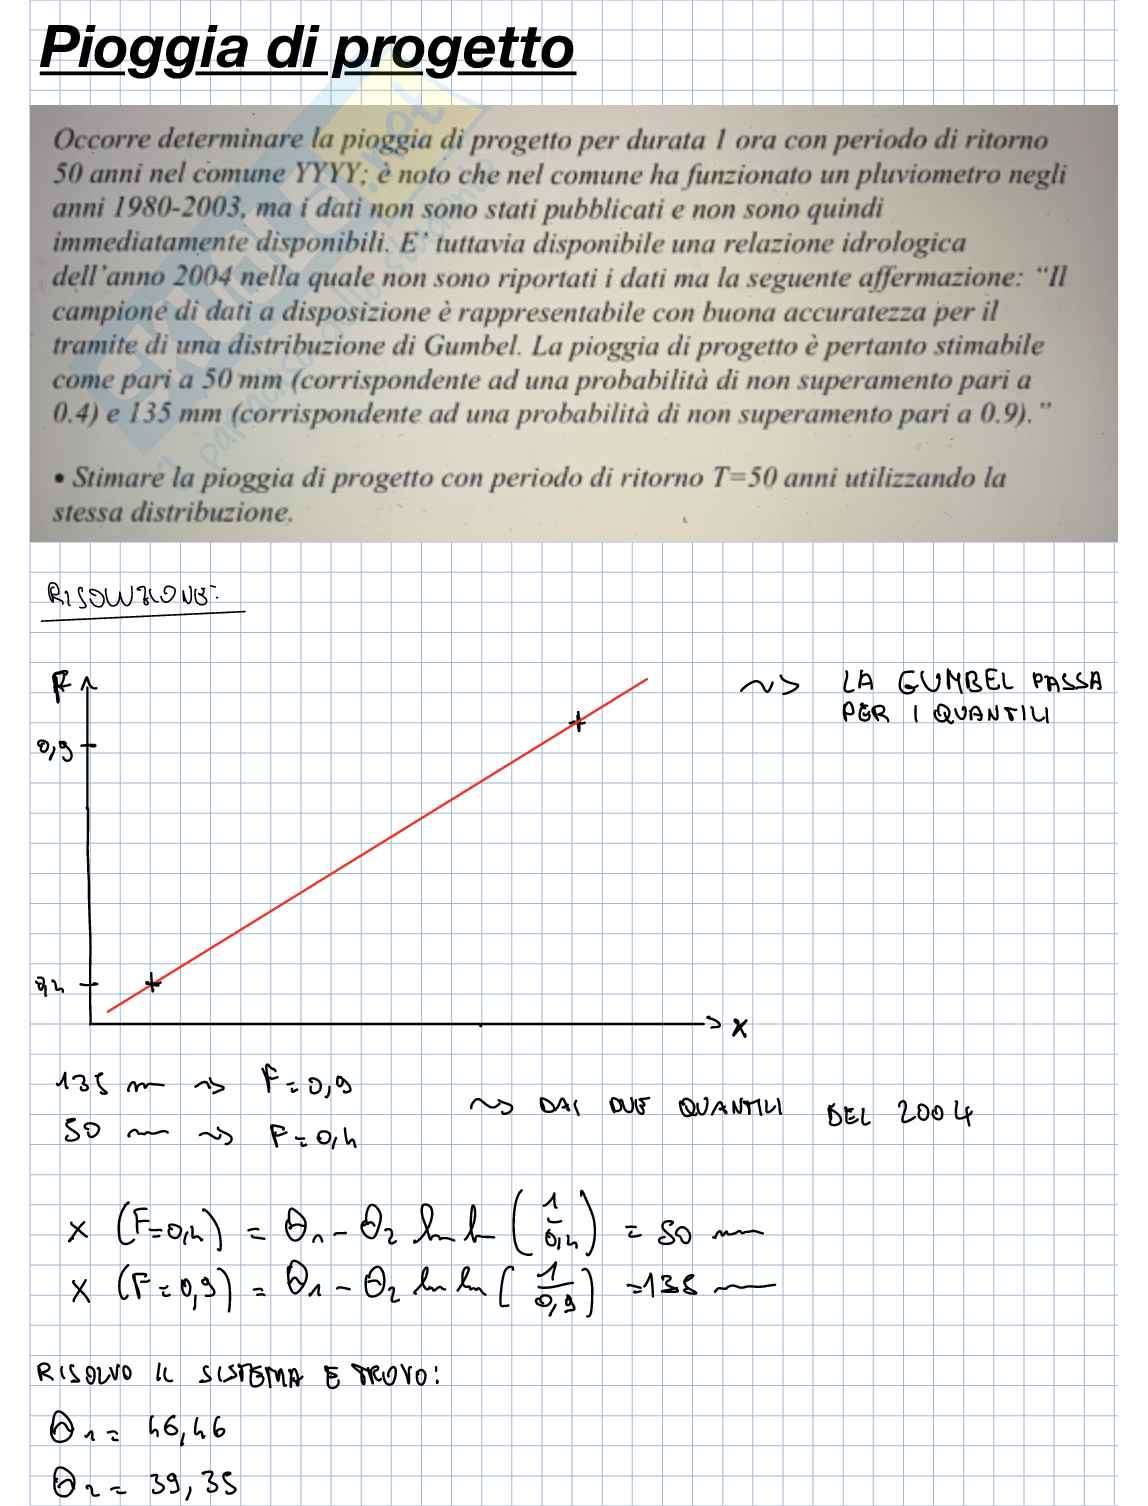 Pioggia di progetto
Occorre determinare la pioggia di progetto per durata 1 ora con periodo di ritorno
50 anni nel comune YYYY; è noto che nel comune ha funzionato un pluviometro negli
anni 1980-2003, ma i dati non sono stati pubblicati e non sono quindi
immediatamente disponibili. E' tuttavia disponibile una relazione idrologica
dell'anno 2004 nella quale non sono riportati i dati ma la seguente affermazione: "Il
campione di dati a disposizione è rappresentabile con buona accuratezza per il
tramite di una distribuzione di Gumbel. La pioggia di progetto è pertanto stimabile
come pari a 50 mm (corrispondente ad una probabilità di non superamento pari a
0.4) e 135 mm (corrispondente ad una probabilità di non superamento pari a 0.9)."
• Stimare la pioggia di progetto con periodo di ritorno T=50 anni utilizzando la
stessa distribuzione.
RISOLUZIONE:
F
LA GUMBEL PASSA
PER I QUANTILI
0,9
0,4
x
135 mm ~> F=0,9
50 mm ~> F=0,4
~> DAI DUE QUANTILI DEL 2004
x (F=0,4) = θ₁ - θ₂ ln ln (1/0,4) = 50 mm
x (F=0,9) = θ₁ - θ₂ ln ln (1/0,9) = 135 mm
RISOLVO IL SISTEMA E TROVO:
θ₁ = 46,46
θ₂ = 39,35